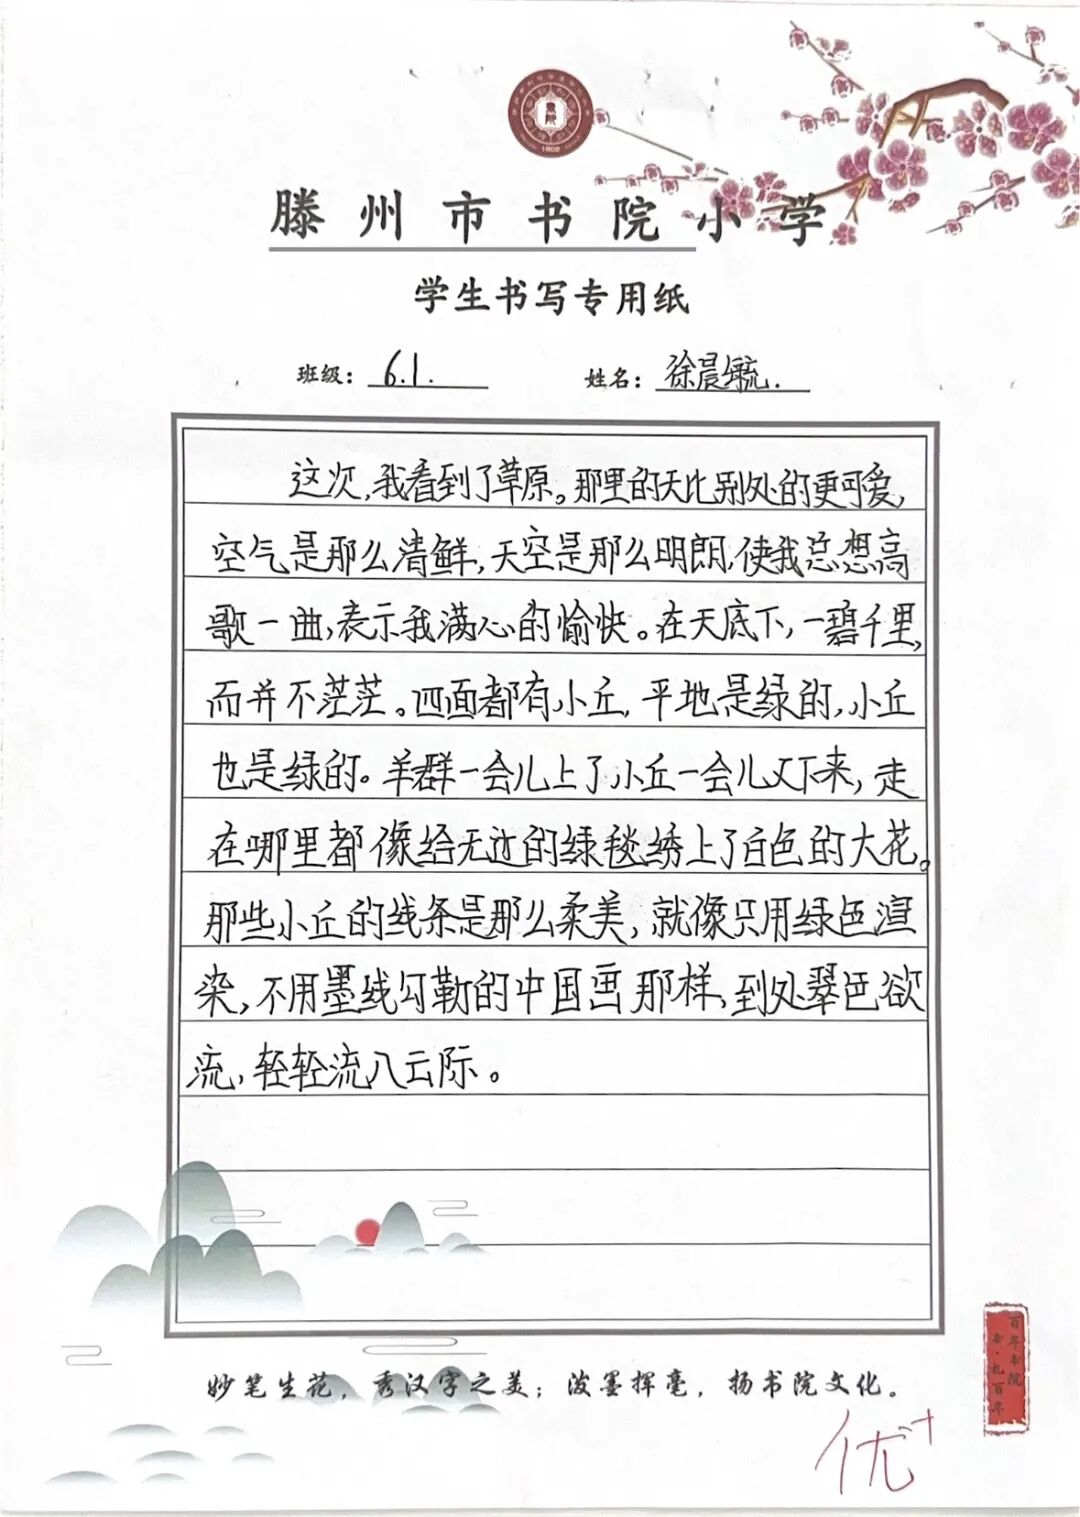 滕州市书院小学
学生书写专用纸
班级：6.1.
姓名：徐晨毓.
这次，我看到了草原。那里的天比别处的更可爱，
空气是那么清鲜，天空是那么明朗，使我总想高
歌一曲，表示我满心的愉快。在天底下，一碧千里，
而并不茫茫。四面都有小丘，平地是绿的，小丘
也是绿的。羊群一会儿上了小丘一会儿又下来，走
在哪里都像给无边的绿毯绣上了白色的大花。
那些小丘的线条是那么柔美，就像只用绿色渲
染，不用墨线勾勒的中国画那样，到处翠色欲
流，轻轻流入云际。
妙笔生花，秀汉字之美；泼墨挥毫，扬书院文化。
百年书院
书·礼百年
优+